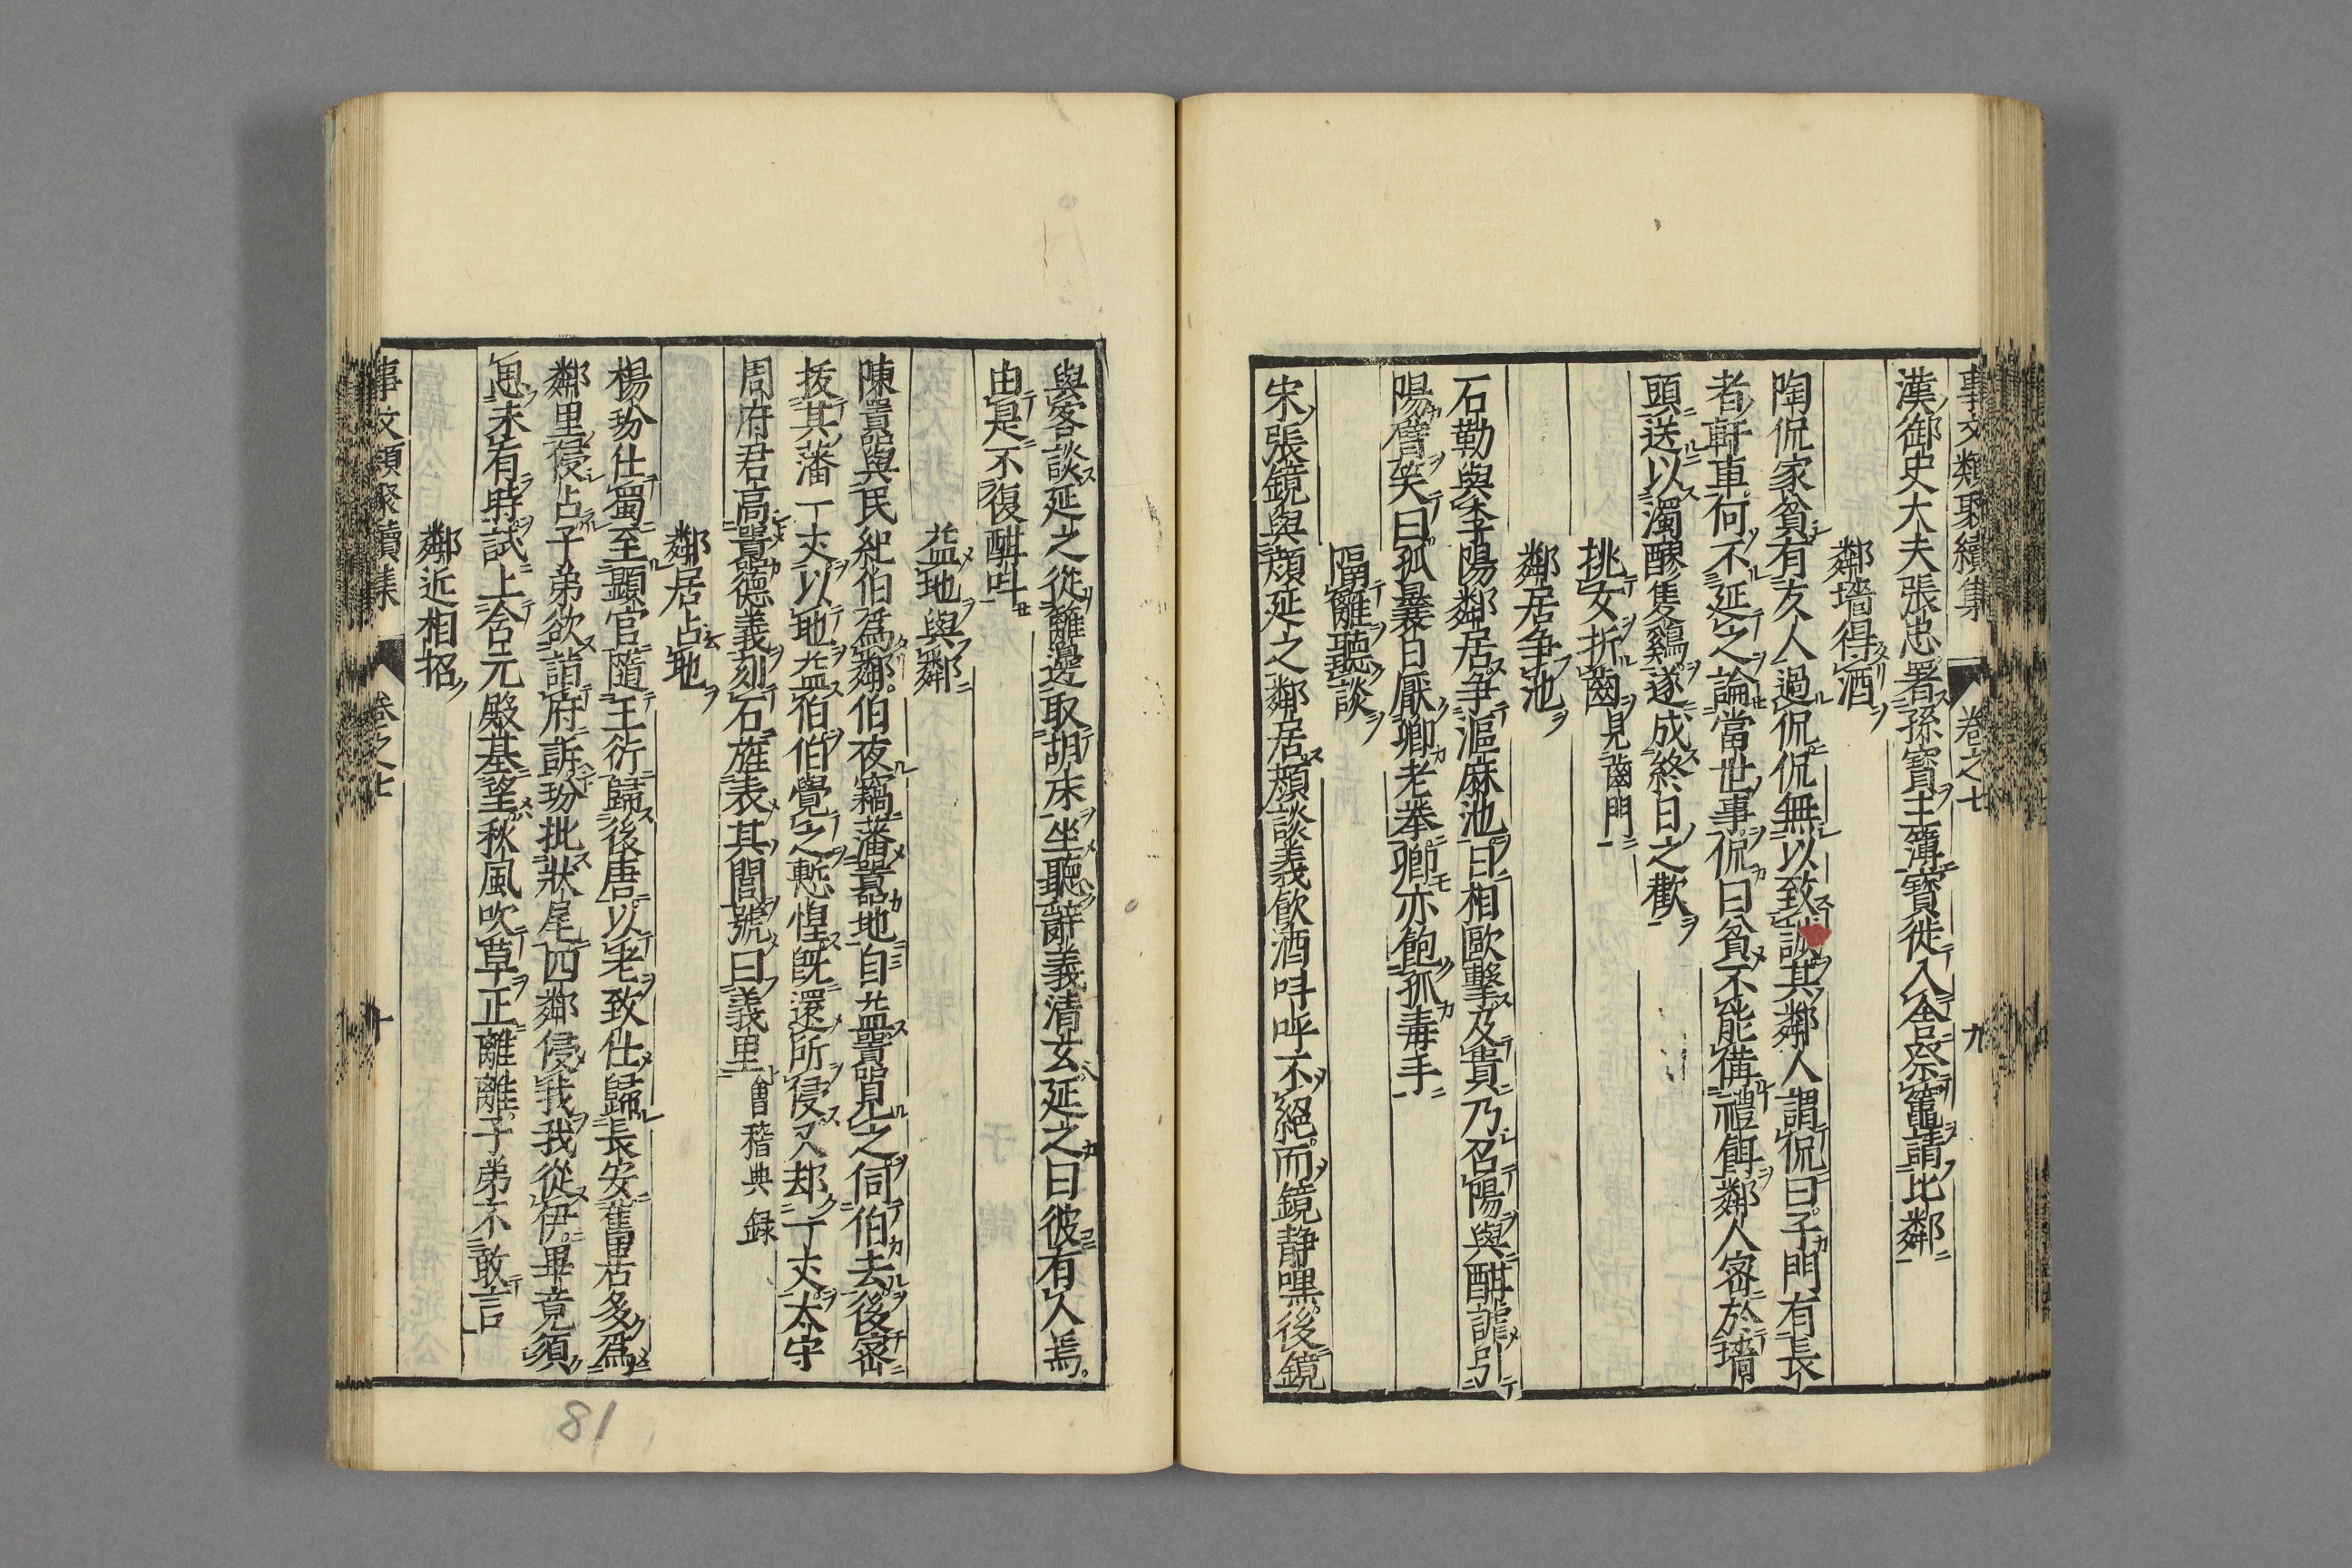 事文類聚續集 卷之七 九
漢御史大夫張忠署孫寶主簿寶徙入舍祭竈請比鄰
鄰墻得酒
陶侃家貧有友人過侃侃無以致誠其鄰人謂侃曰子門有長
者軒車何不延之論當世事侃曰貧不能備禮餌鄰人密於墻
頭送以濁醪隻鷄遂成終日之歡
挑女折齒見齒門
鄰居争池
石勒與李陽鄰居争漚麻池日相歐擊及貴乃召陽與酣謔引
陽臂笑曰孤曩日厭卿老拳卿亦飽孤毒手
隔籬聽談
宋張鏡與顔延之鄰居顔談義飲酒呌呼不絕而鏡静嘿後鏡
與客談延之從籬邊取胡床坐聽辭義清玄延之曰彼有人焉
由是不復酣呌
益地與鄰
陳囂與民紀伯爲鄰伯夜竊藩囂地自益囂見之伺伯去後密
拔其藩一丈以地益伯伯覺之慙惶既還所侵又却一丈太守
周府君高囂德義刻石旌表其閭號曰義里 會稽典録
鄰居占地
楊玢仕蜀至顯官隨王衍歸後唐以老致仕歸長安舊居多爲
鄰里侵占子弟欲詣府訴玢批狀尾四鄰侵我我從伊畢竟須
思未有時試上含元殿基望秋風吹草正離離子弟不敢言
鄰近相招
事文類聚續集 卷之七 十
81